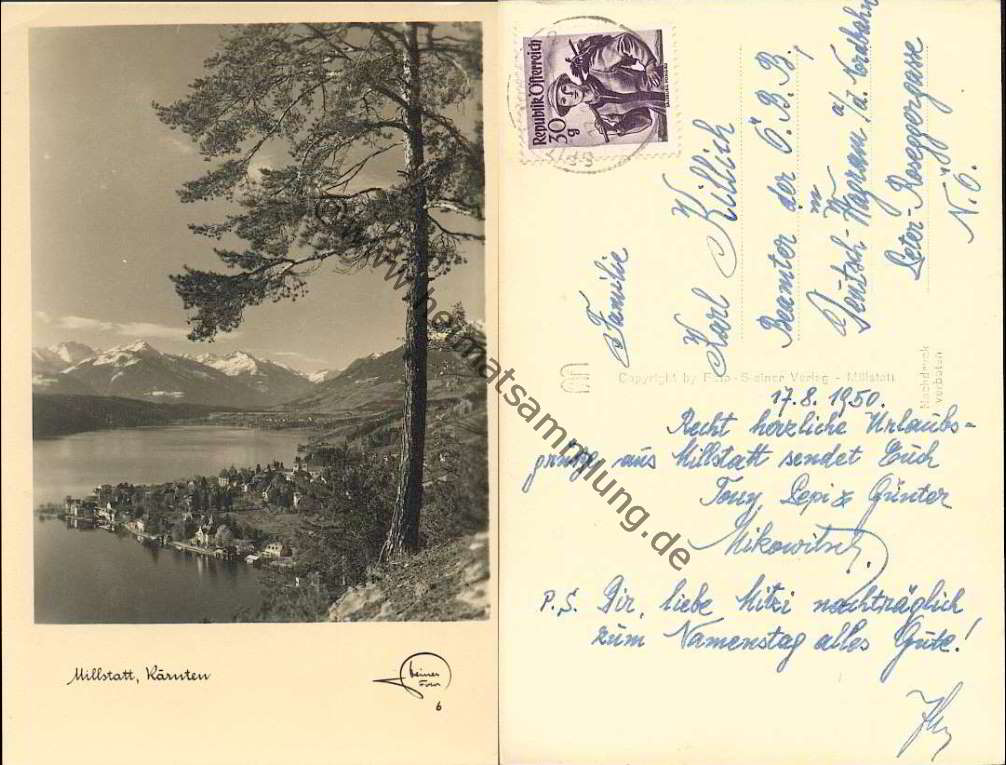 Millstatt, Kärnten
Steiner
Foto
6
www.heimatsammlung.de
Republik Österreich
30
g
Familie
Karl Killich
Beamter der Ö.B.B.
in
Deutsch-Wagram a/d. Nordbahn
Peter-Roseggergasse
N.Ö.
Copyright by Foto-Steiner Verlag - Millstatt
Nachdruck
verboten
17.8.1950.
Recht herzliche Urlaubs-
grüße aus Millstatt sendet Euch
Tony, Pepi & Günter
Mikowitsch
P.S. Dir, liebe Mitzi nachträglich
zum Namenstag alles Gute!